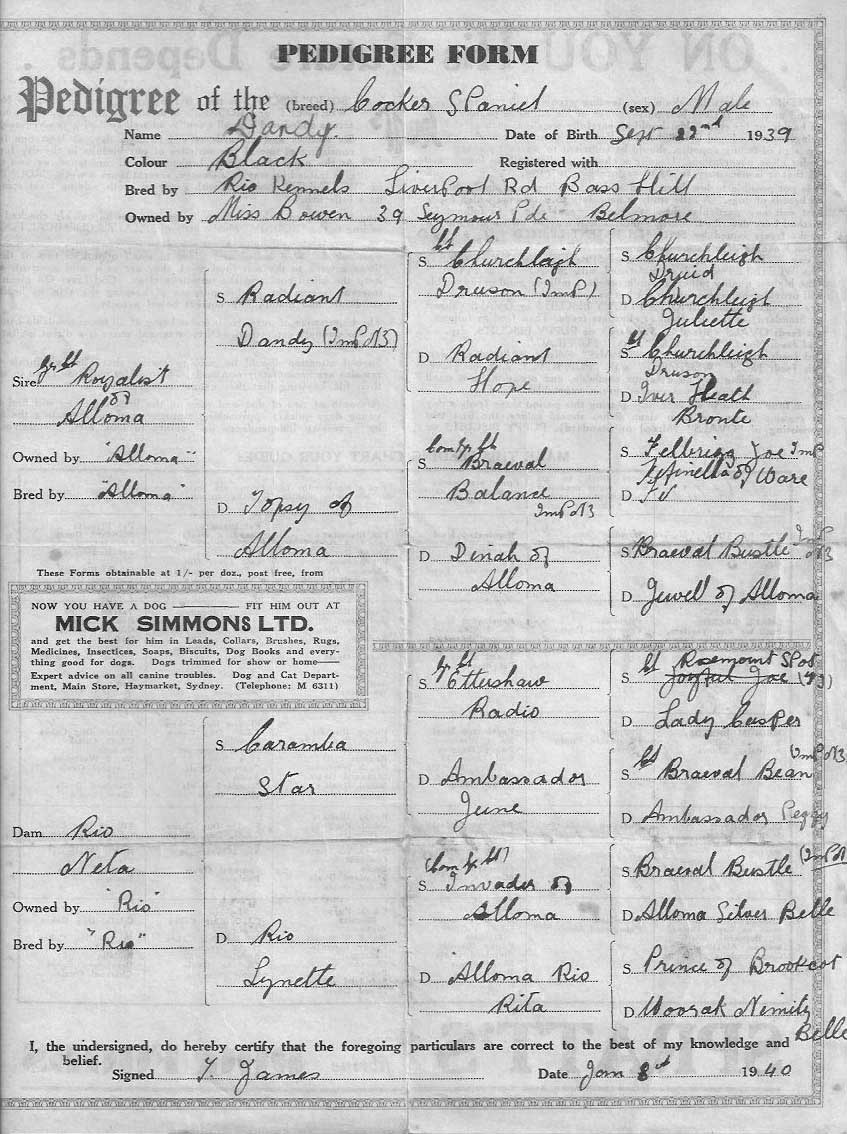 PEDIGREE FORM
Pedigree of the (breed) Cocker Spaniel (sex) Male
Name Dandy. Date of Birth Sept 22nd 1939
Colour Black Registered with
Bred by Rio Kennels Liverpool Rd Bass Hill
Owned by Miss Bowen 39 Seymour Pde Belmore
Sire Gr Ch Royalist
of
Alloma
Owned by "Alloma"
Bred by "Alloma"
S Radiant
Dandy (Imp NZ)
D Topsy of
Alloma
Ch
S Churchleigh
Druson (Imp)
D Radiant
Hope
S Churchleigh
Druid
D Churchleigh
Juliette
Ch
S Churchleigh
Druson
D Iver Heath
Bronte
Com Gr Ch
S Braeval
Balance
Imp NZ
D Dinah of
Alloma
S Felbrigg Joe Imp
of Ware
D
S Braeval Bustle Imp NZ
D Jewell of Alloma
These Forms obtainable at 1/- per doz., post free, from
NOW YOU HAVE A DOG ——— FIT HIM OUT AT
MICK SIMMONS LTD.
and get the best for him in Leads, Collars, Brushes, Rugs,
Medicines, Insectices, Soaps, Biscuits, Dog Books and every-
thing good for dogs. Dogs trimmed for show or home—
Expert advice on all canine troubles. Dog and Cat Depart-
ment, Main Store, Haymarket, Sydney. (Telephone: M 6311)
Dam Rio
Neta
Owned by "Rio"
Bred by "Rio"
S Caramba
Star
D Rio
Lynette
Gr Ch
S Ettershaw
Radio
D Ambassador
June
Ch Rosemount Spot
S Joyful Joe
D Lady Casper
Ch
S Braeval Bean (Imp NZ)
D Ambassador Peggy
(Com Gr Ch)
S Invader of
Alloma
D Alloma Rio
Rita
S Braeval Bustle (Imp NZ
D Alloma Silver Belle
S Prince of Brookcot
D Woorak Nimity
Belle
I, the undersigned, do hereby certify that the foregoing particulars are correct to the best of my knowledge and
belief.
Signed T. James Date Jan 8th 1940